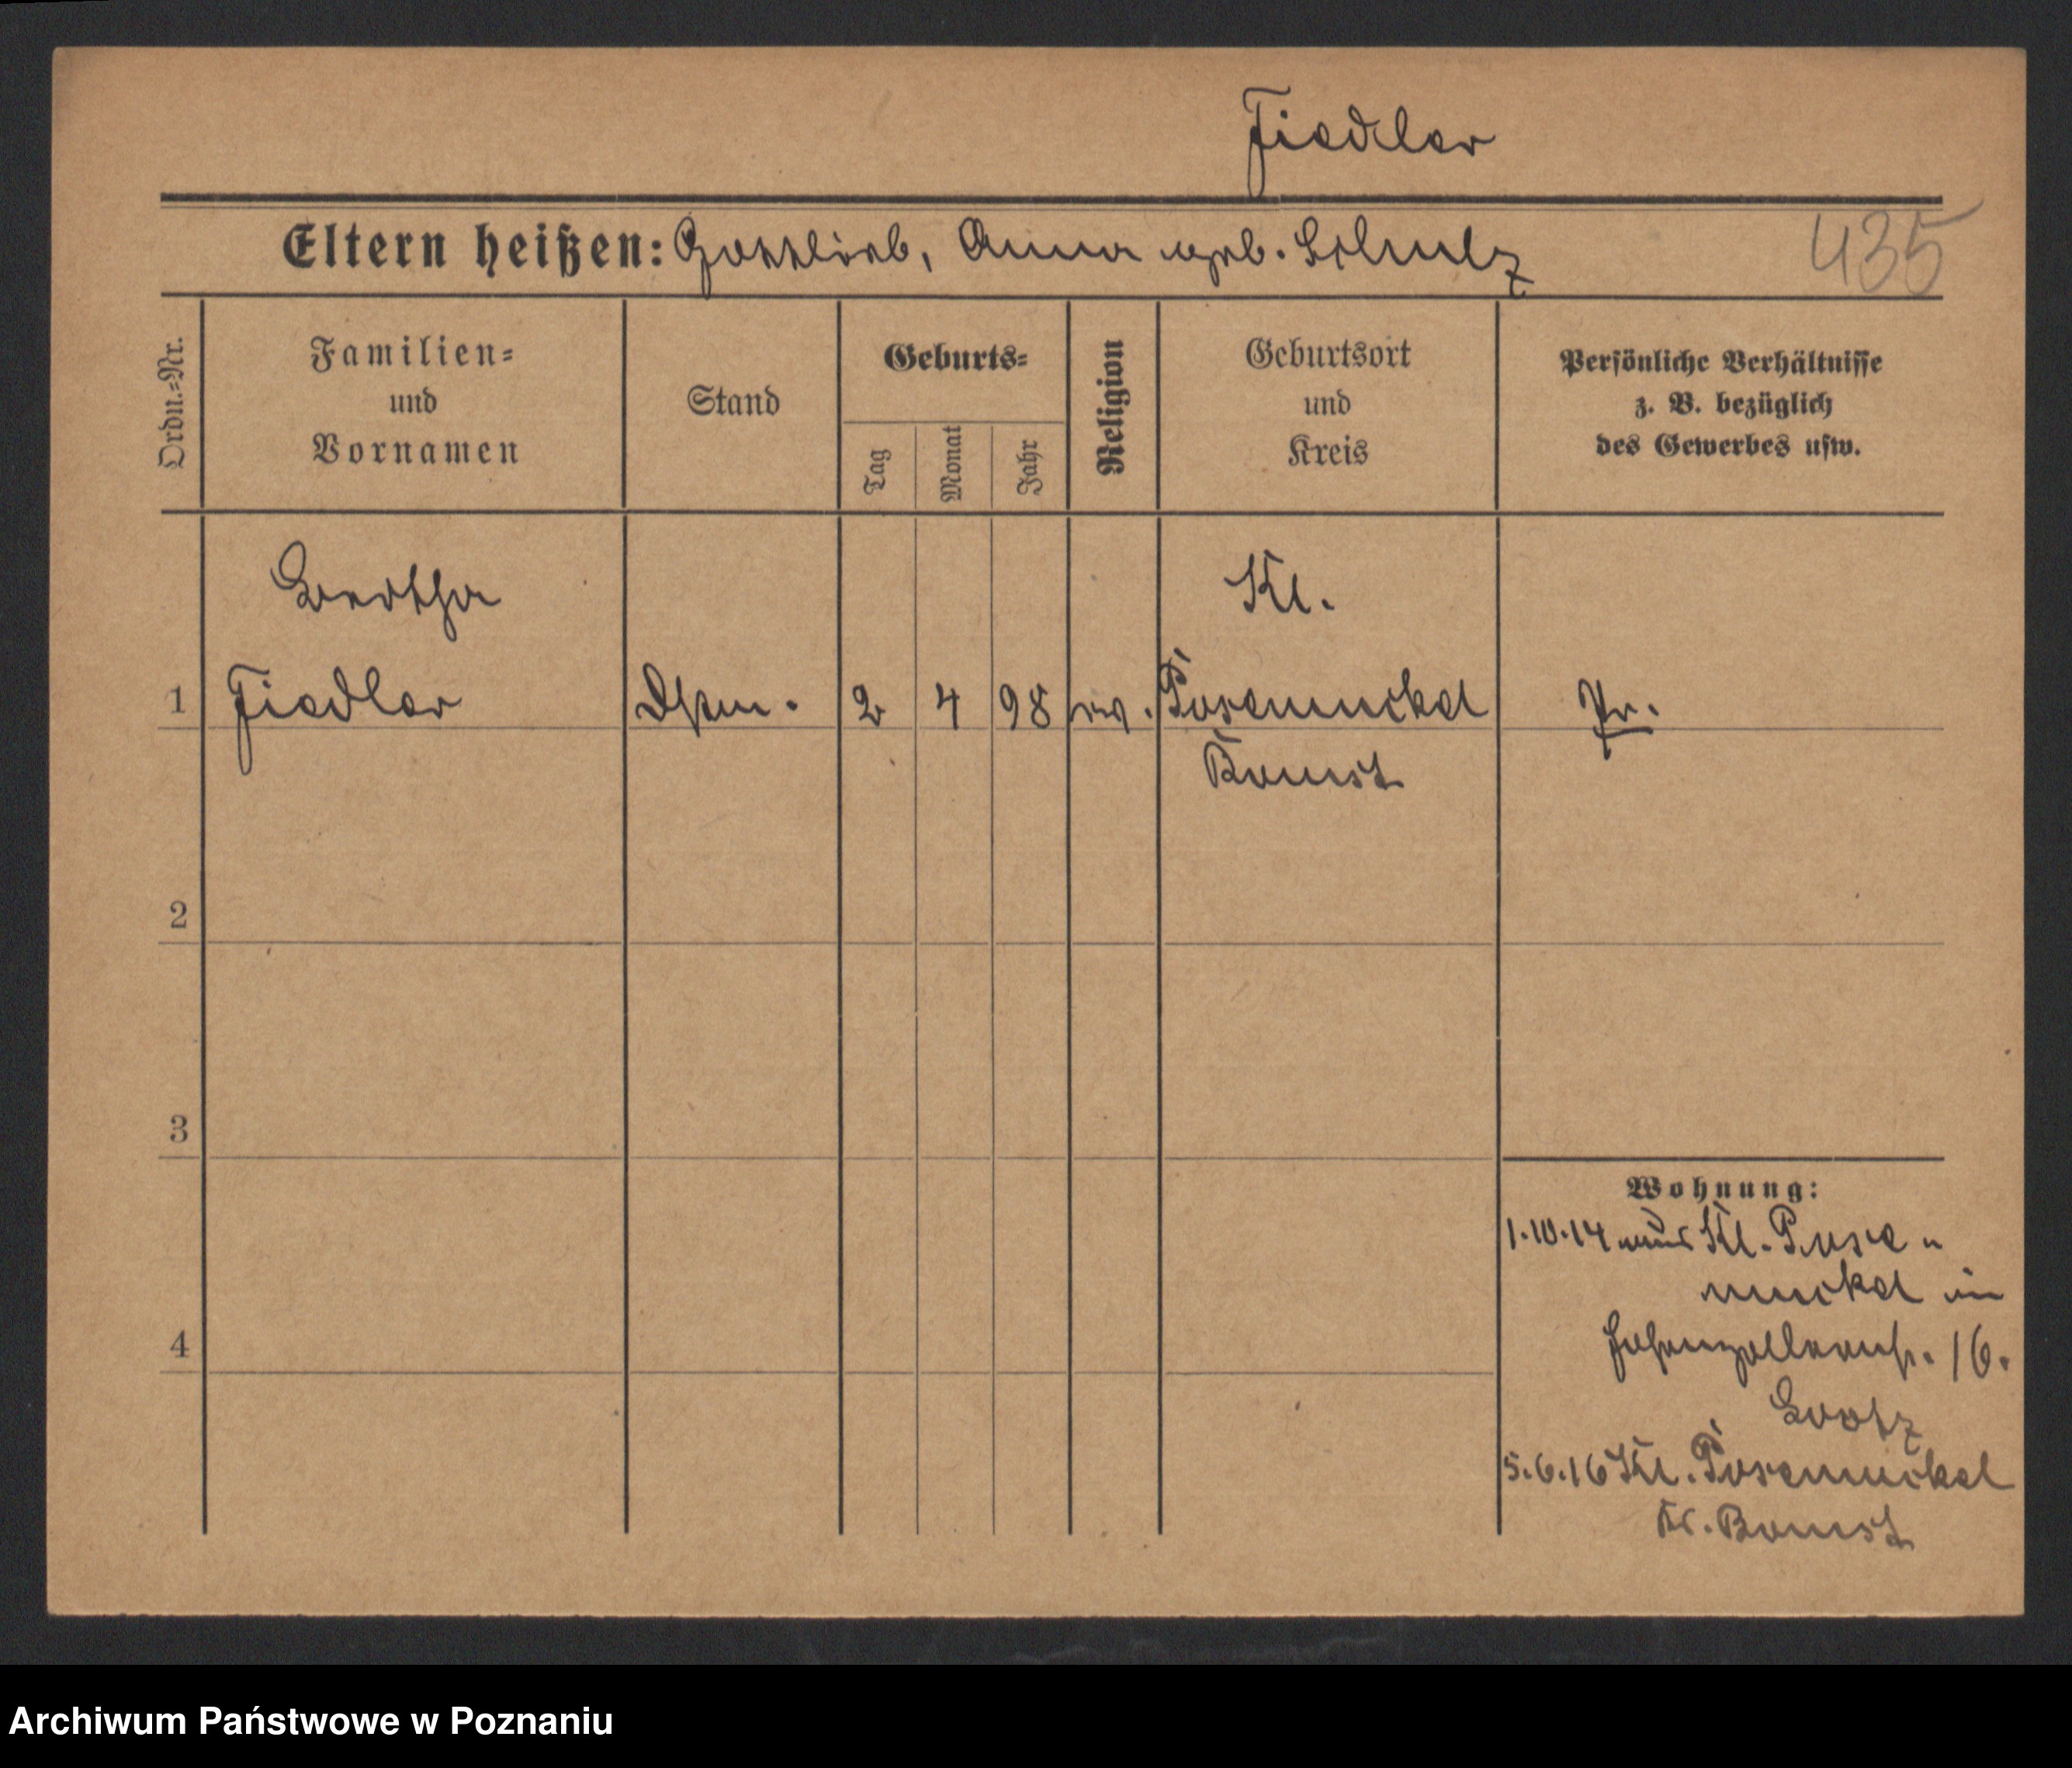 Fiedler
Eltern heißen: Gottlieb, Anna geb. Schulz
435
Ordn.=Nr.
Familien=
und
Vornamen
Stand
Geburts=
Tag
Monat
Jahr
Religion
Geburtsort
und
Kreis
Persönliche Verhältnisse
z. B. bezüglich
des Gewerbes usw.
Bertha
Kl.
1 Fiedler 2 4 98 ev. Posemuckel Pr.
Bomst
2
3
4
Wohnung:
1.10.14 aus Kl. Pose-
muckel in
Hohenzollernstr. 16.
5.6.16 Kl. Posemuckel
Kr. Bomst
Archiwum Państwowe w Poznaniu